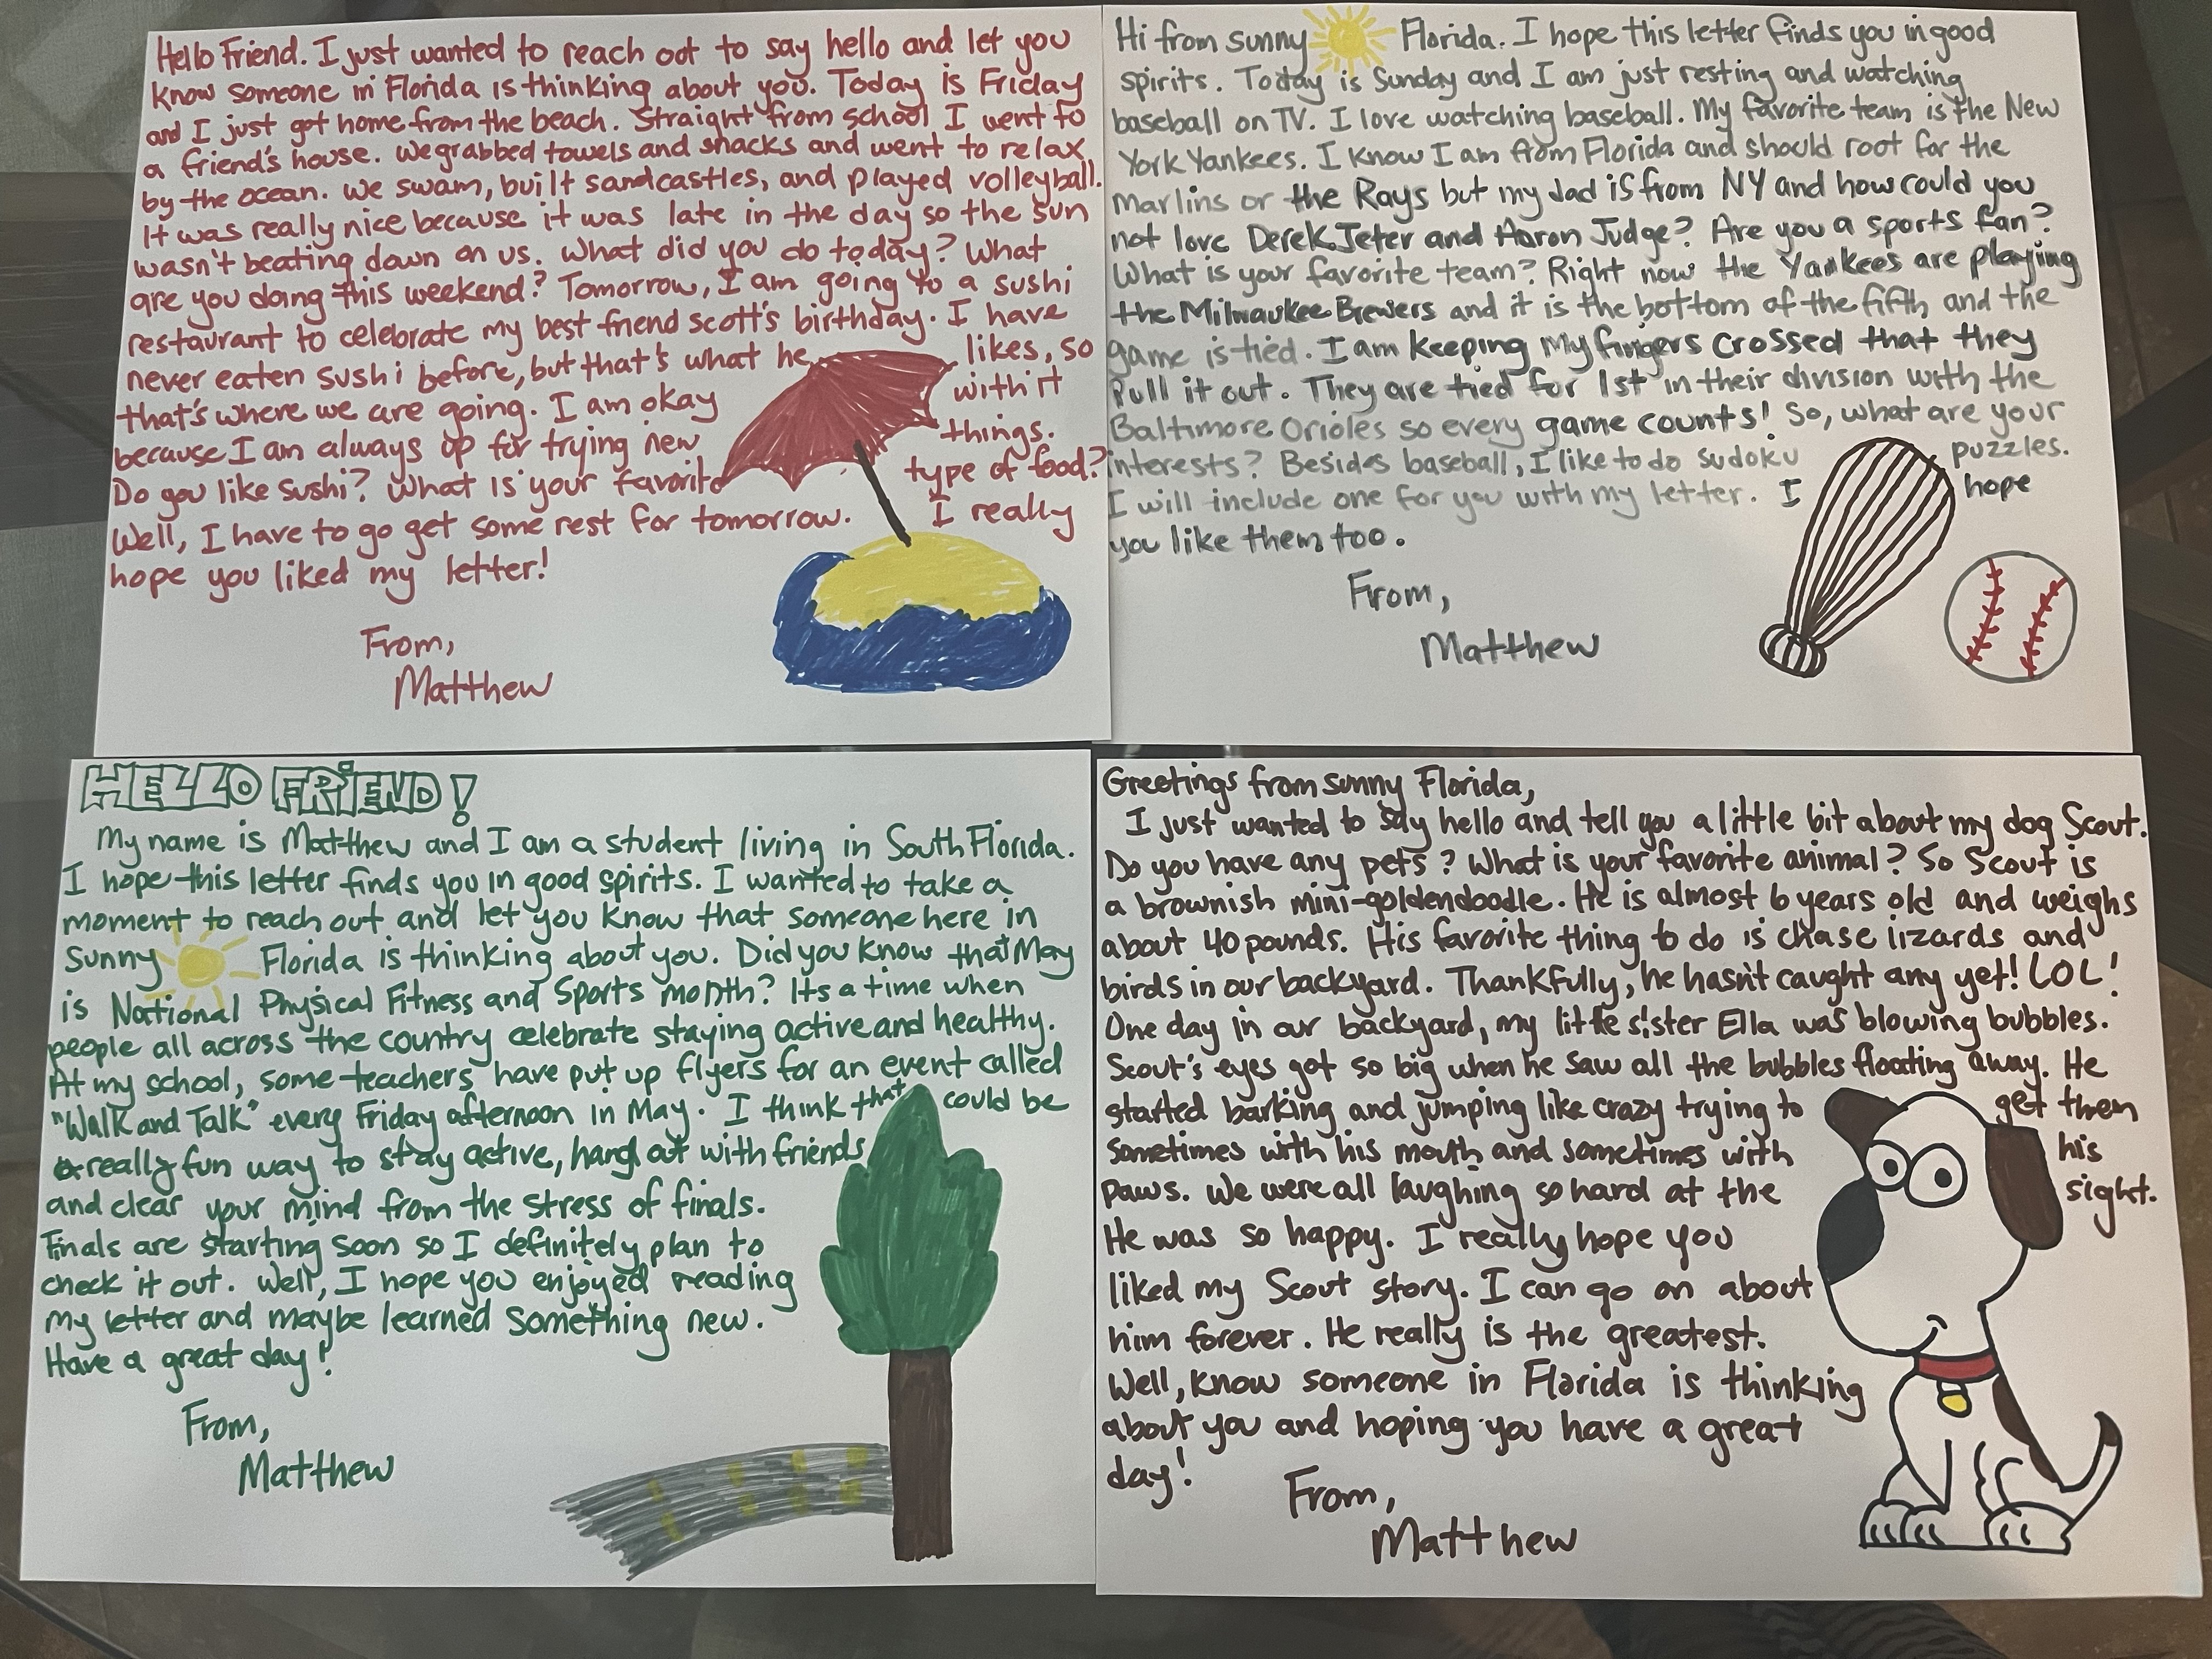 Hello Friend. I just wanted to reach out to say hello and let you
know someone in Florida is thinking about you. Today is Friday
and I just got home from the beach. Straight from school I went to
a friend's house. We grabbed towels and snacks and went to relax
by the ocean. We swam, built sandcastles, and played volleyball.
It was really nice because it was late in the day so the sun
wasn't beating down on us. What did you do today? What
are you doing this weekend? Tomorrow, I am going to a sushi
restaurant to celebrate my best friend Scott's birthday. I have
never eaten sushi before, but that's what he likes, so
that's where we are going. I am okay with it
because I am always up for trying new things.
Do you like sushi? What is your favorite type of food?
Well, I have to go get some rest for tomorrow. I really
hope you liked my letter!
From,
Matthew
Hi from sunny Florida. I hope this letter finds you in good
spirits. Today is Sunday and I am just resting and watching
baseball on TV. I love watching baseball. My favorite team is the New
York Yankees. I know I am from Florida and should root for the
Marlins or the Rays but my dad is from NY and how could you
not love Derek Jeter and Aaron Judge? Are you a sports fan?
What is your favorite team? Right now the Yankees are playing
the Milwaukee Brewers and it is the bottom of the fifth and the
game is tied. I am keeping my fingers crossed that they
pull it out. They are tied for 1st in their division with the
Baltimore Orioles so every game counts! So, what are your
interests? Besides baseball, I like to do sudoku puzzles.
I will include one for you with my letter. I hope
you like them too.
From,
Matthew
HELLO FRIEND!
My name is Matthew and I am a student living in South Florida.
I hope this letter finds you in good spirits. I wanted to take a
moment to reach out and let you know that someone here in
Sunny Florida is thinking about you. Did you know that May
is National Physical Fitness and Sports month? Its a time when
people all across the country celebrate staying active and healthy.
At my school, some teachers have put up flyers for an event called
"Walk and Talk" every Friday afternoon in May. I think that could be
a really fun way to stay active, hang out with friends
and clear your mind from the stress of finals.
Finals are starting soon so I definitely plan to
check it out. Well, I hope you enjoyed reading
my letter and maybe learned something new.
Have a great day!
From,
Matthew
Greetings from sunny Florida,
I just wanted to say hello and tell you a little bit about my dog Scout.
Do you have any pets? What is your favorite animal? So Scout is
a brownish mini-goldendoodle. He is almost 6 years old and weighs
about 40 pounds. His favorite thing to do is chase lizards and
birds in our backyard. Thankfully, he hasn't caught any yet! LOL!
One day in our backyard, my little sister Ella was blowing bubbles.
Scout's eyes got so big when he saw all the bubbles floating away. He
started barking and jumping like crazy trying to get them
sometimes with his mouth and sometimes with his
paws. We were all laughing so hard at the sight.
He was so happy. I really hope you
liked my Scout story. I can go on about
him forever. He really is the greatest.
Well, know someone in Florida is thinking
about you and hoping you have a great
day!
From,
Matthew